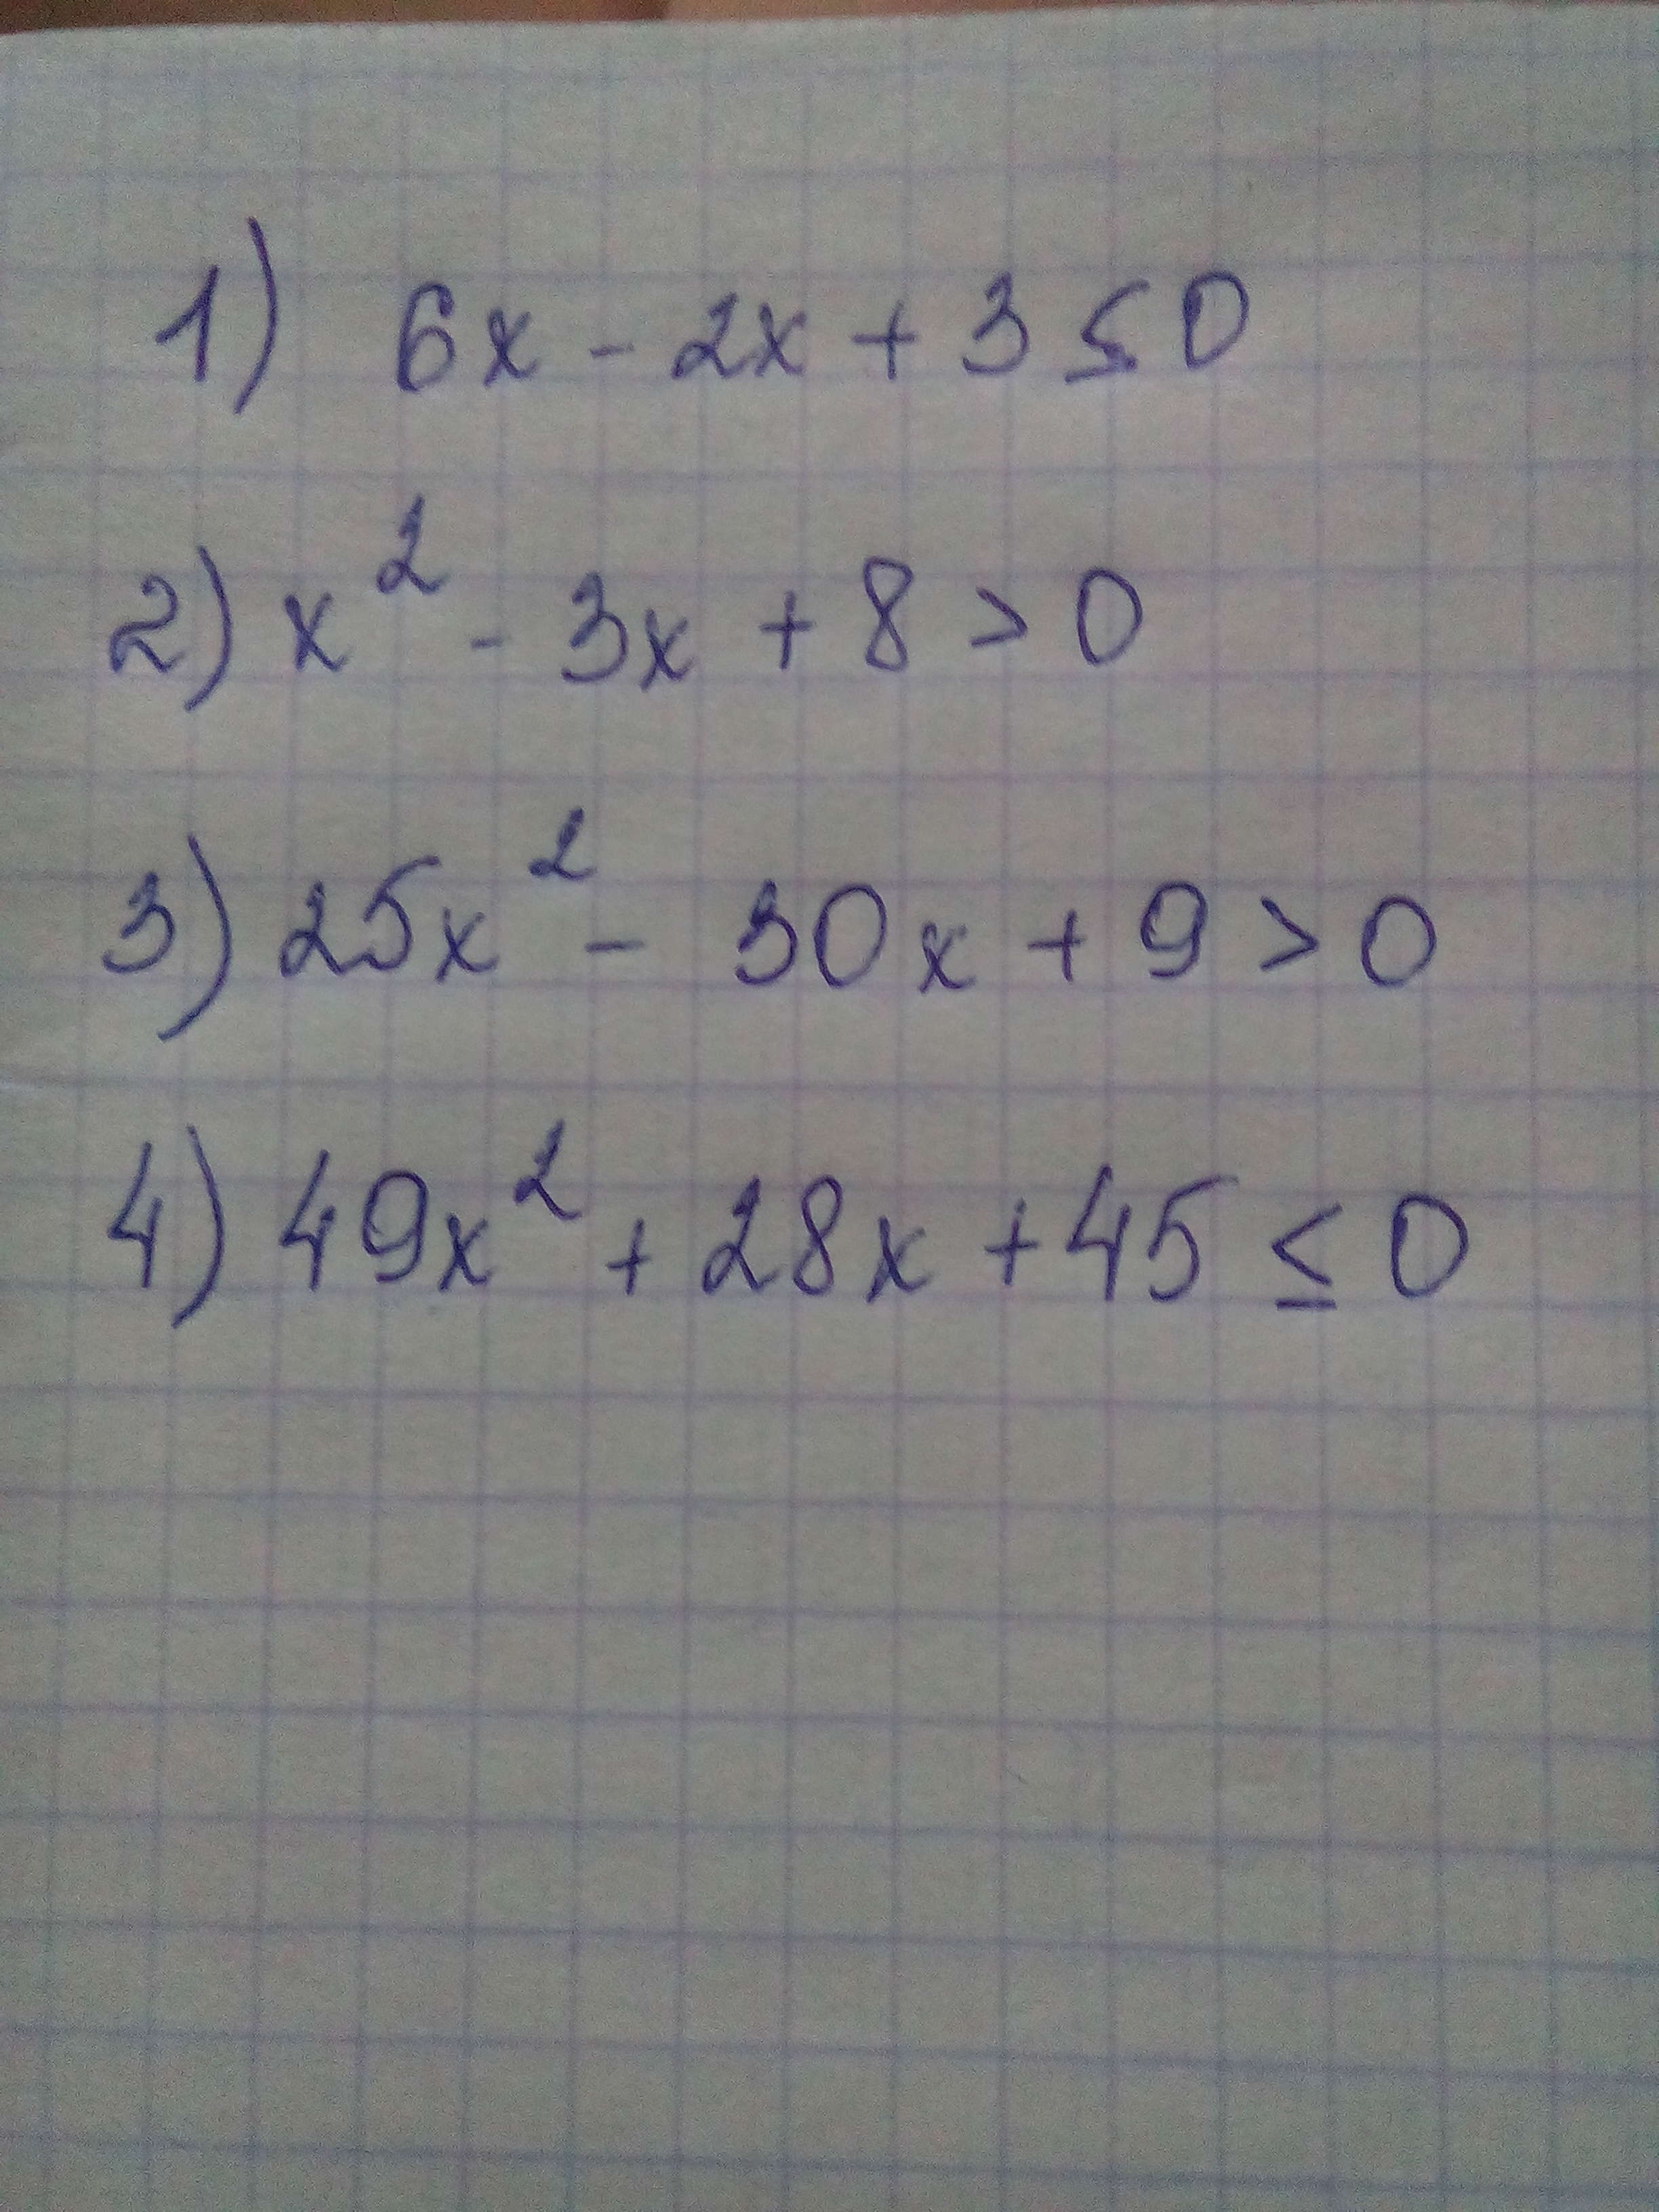 1) 6x - 2x + 3 ≤ 0
2) x² - 3x + 8 > 0
3) 25x² - 30x + 9 > 0
4) 49x² + 28x + 45 ≤ 0